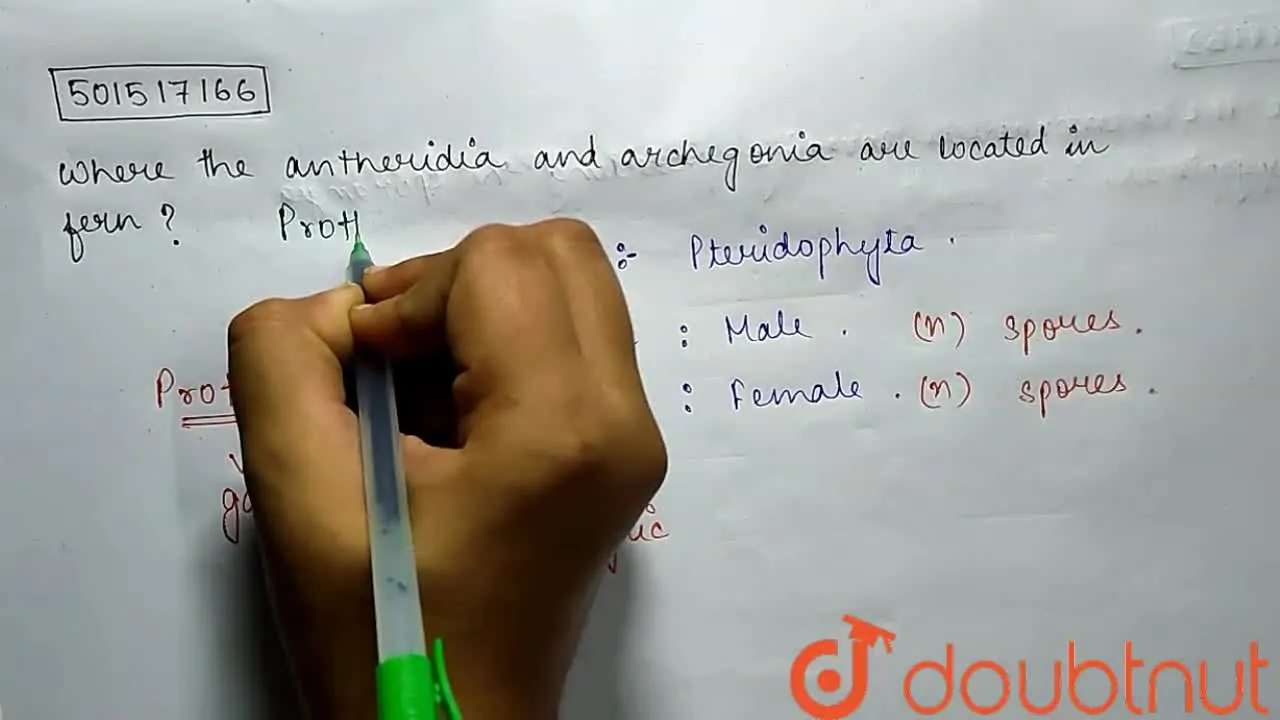 501517166
Where the antheridia and archegonia are located in
fern ? Proth
:- Pteridophyta .
: Male . (n) spores .
Prot : Female . (n) spores .
doubtnut